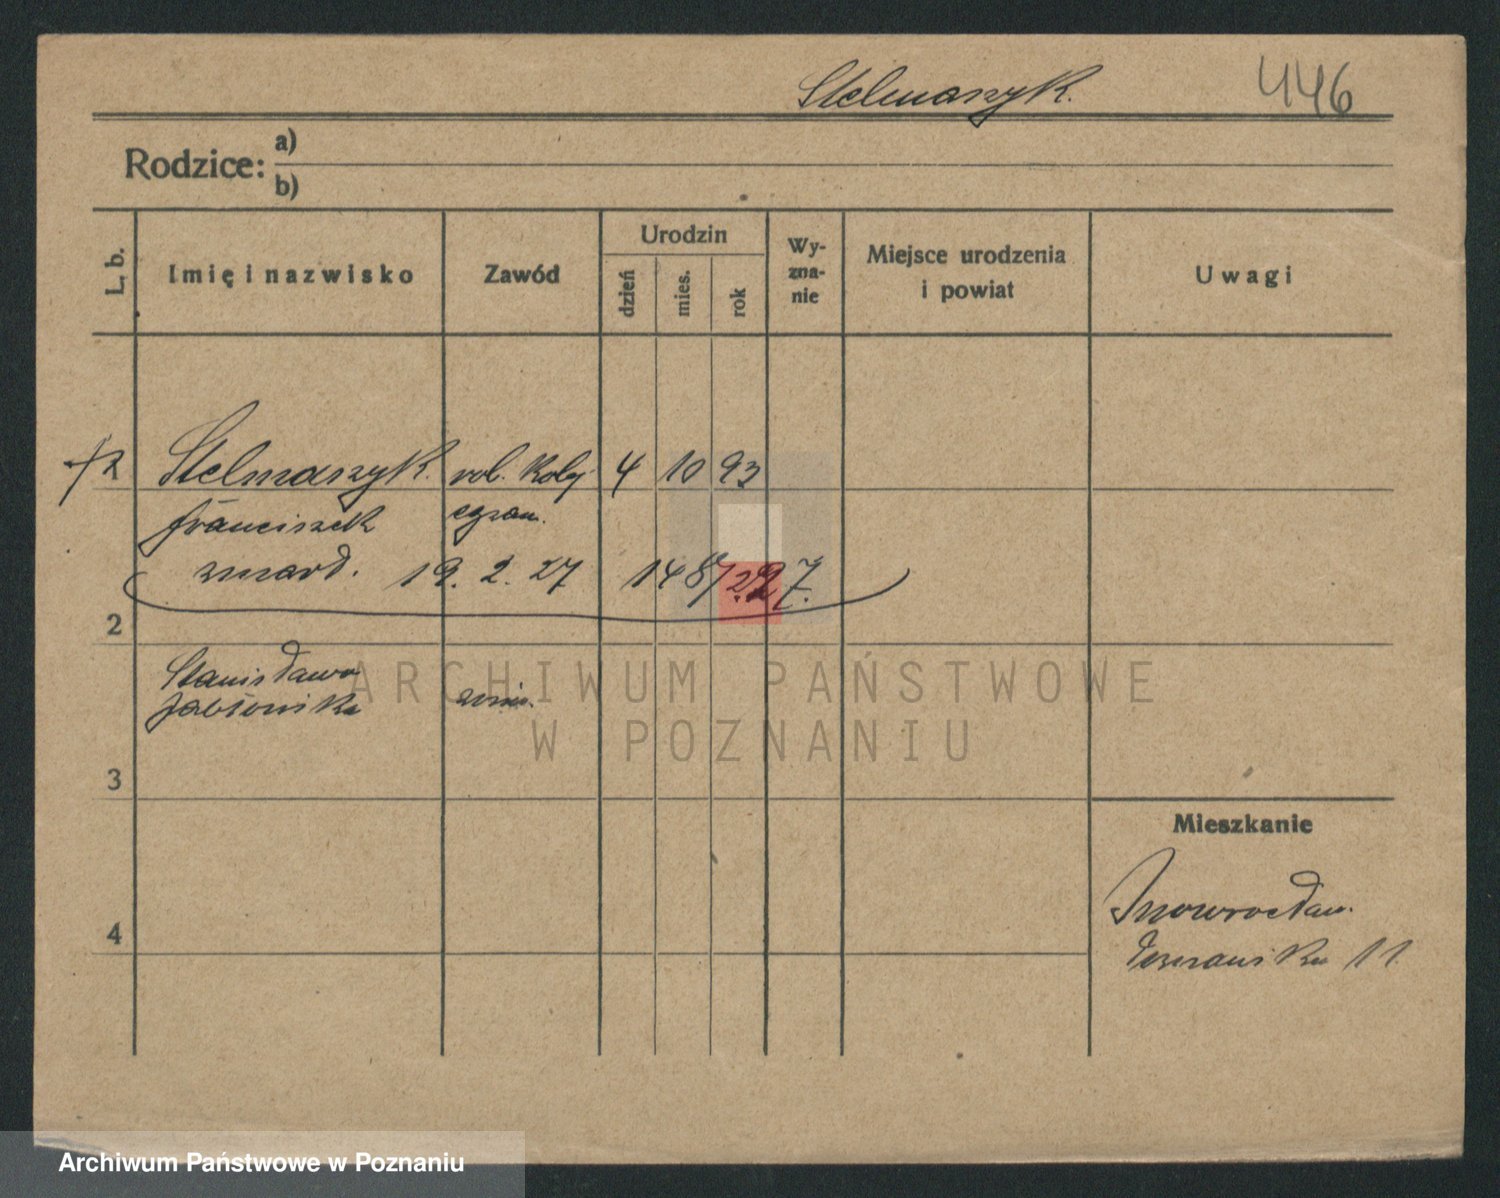 Stelmaszyk. 446
Rodzice: a)
b)
L. b. Imię i nazwisko Zawód Urodzin dzień mies. rok Wy-zna-nie Miejsce urodzenia i powiat Uwagi
Stelmaszyk. rob. Kolej 4 10 93
Franciszek egzam.
zmarł. 19. 2. 27 148/2.27.
2
Stanisława
Jabłońska
ARCHIWUM PAŃSTWOWE
W POZNANIU
3
Mieszkanie
Inowrocław.
4
11
Archiwum Państwowe w Poznaniu